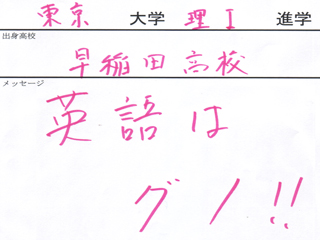 東京 大学 理I 進学
出身高校
早稲田高校
メッセージ
英語は
グノ!!